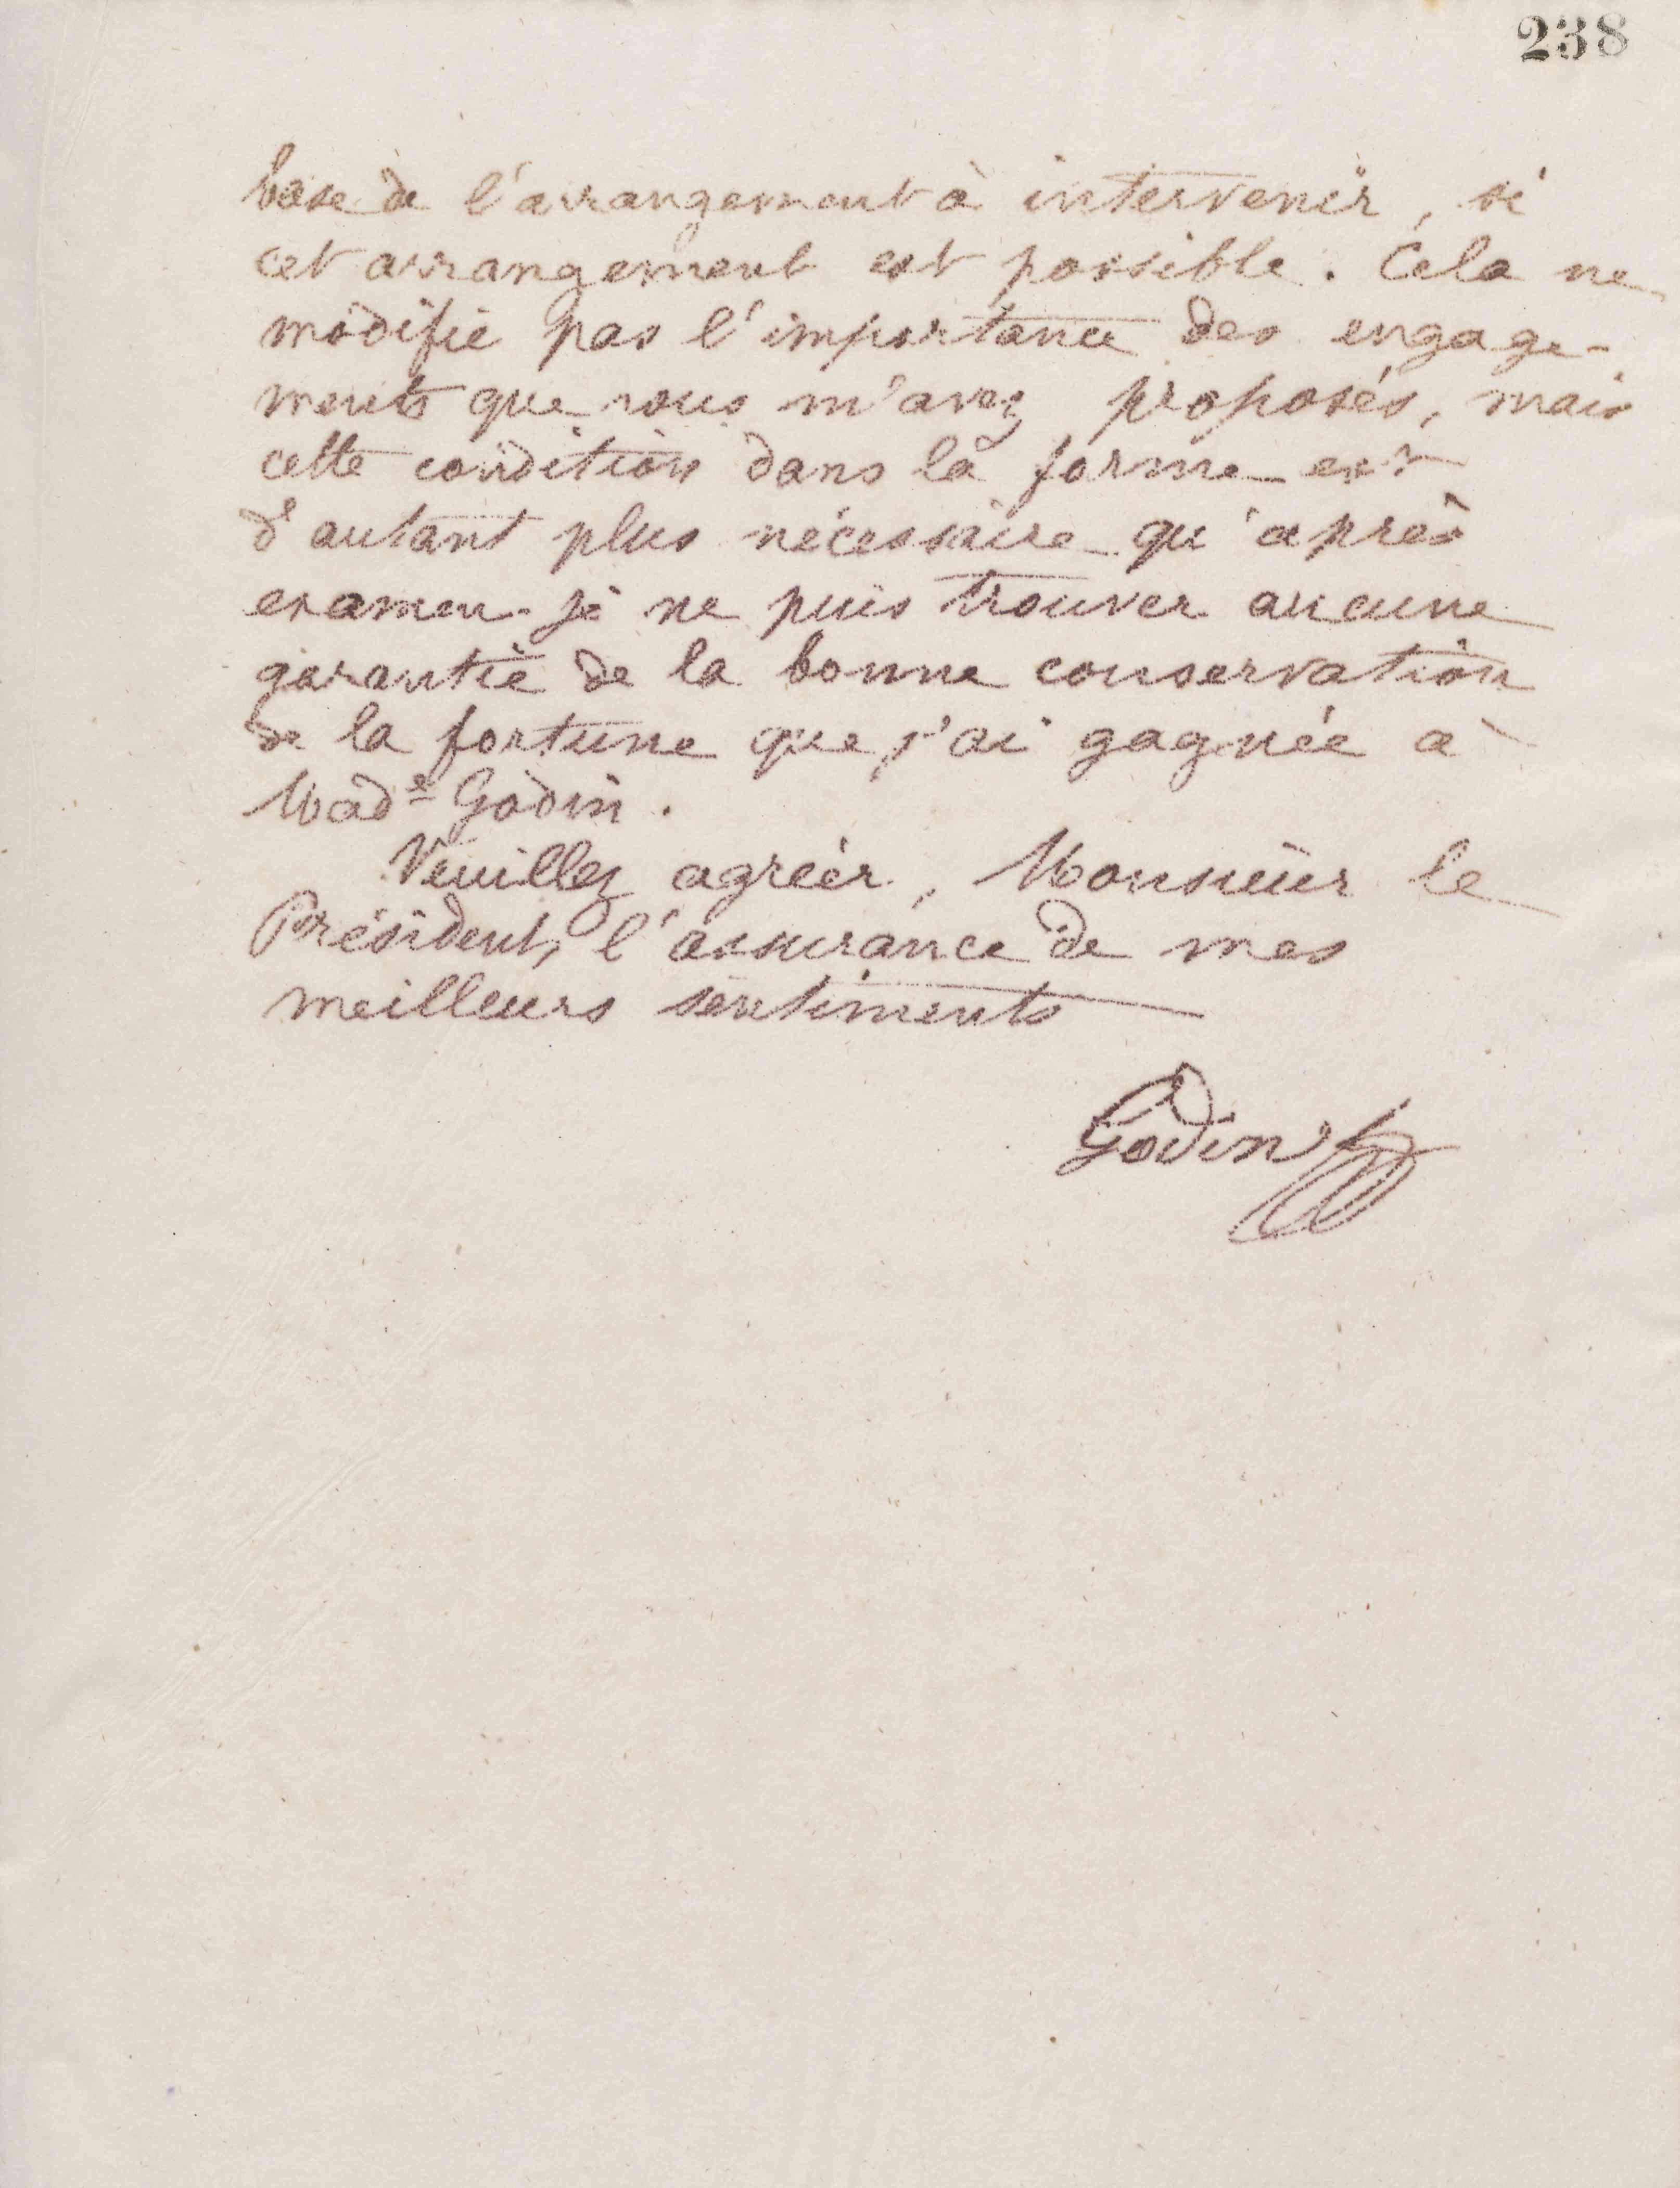 238
base de l'arrangement à intervenir, si
cet arrangement est possible. Cela ne
modifie pas l'importance des engage-
ments que vous m'avez proposés, mais
cette condition dans la forme est
d'autant plus nécessaire qu'après
examen je ne puis trouver aucune
garantie de la bonne conservation
de la fortune que j'ai gagnée à
Made Godin.
Veuillez agréer, Monsieur le
Président, l'assurance de mes
meilleurs sentiments
Godin